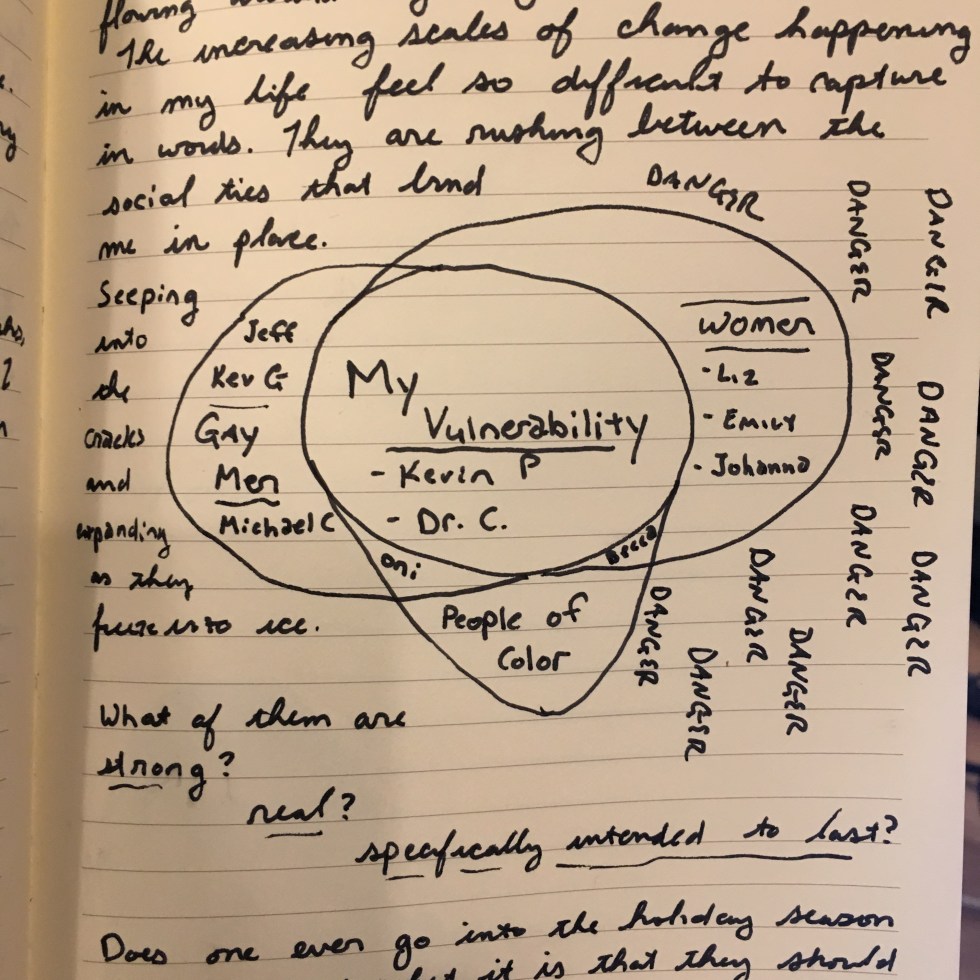 flowing
The increasing scales of change happening
in my life feel so difficult to capture
in words. They are rushing between the
social ties that bind
me in place.
Seeping
into
the
cracks
and
expanding
as they
freeze into ice.
Jeff
Kev G
GAY
Men
Michael C
My
Vulnerability
- Kevin P
- Dr. C.
Women
- Liz
- EMILY
- Johanna
Oni
Becca
People of
Color
DANGER
DANGER
DANGER
DANGER
DANGER
DANGER
DANGER
DANGER
DANGER
DANGER
DANGER
What of them are
strong?
real?
specifically intended to last?
Does one ever go into the holiday season
it is that they should